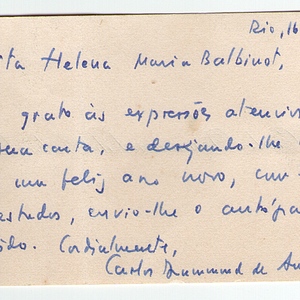 Rio, 16
ita Helena Maria Balbinot,
grato às expressões
sua carta, e desejando-lhe
um feliz ano novo,
estudos, envio-lhe o autógra
ido. Cordialmente,
Carlos Drummond de An